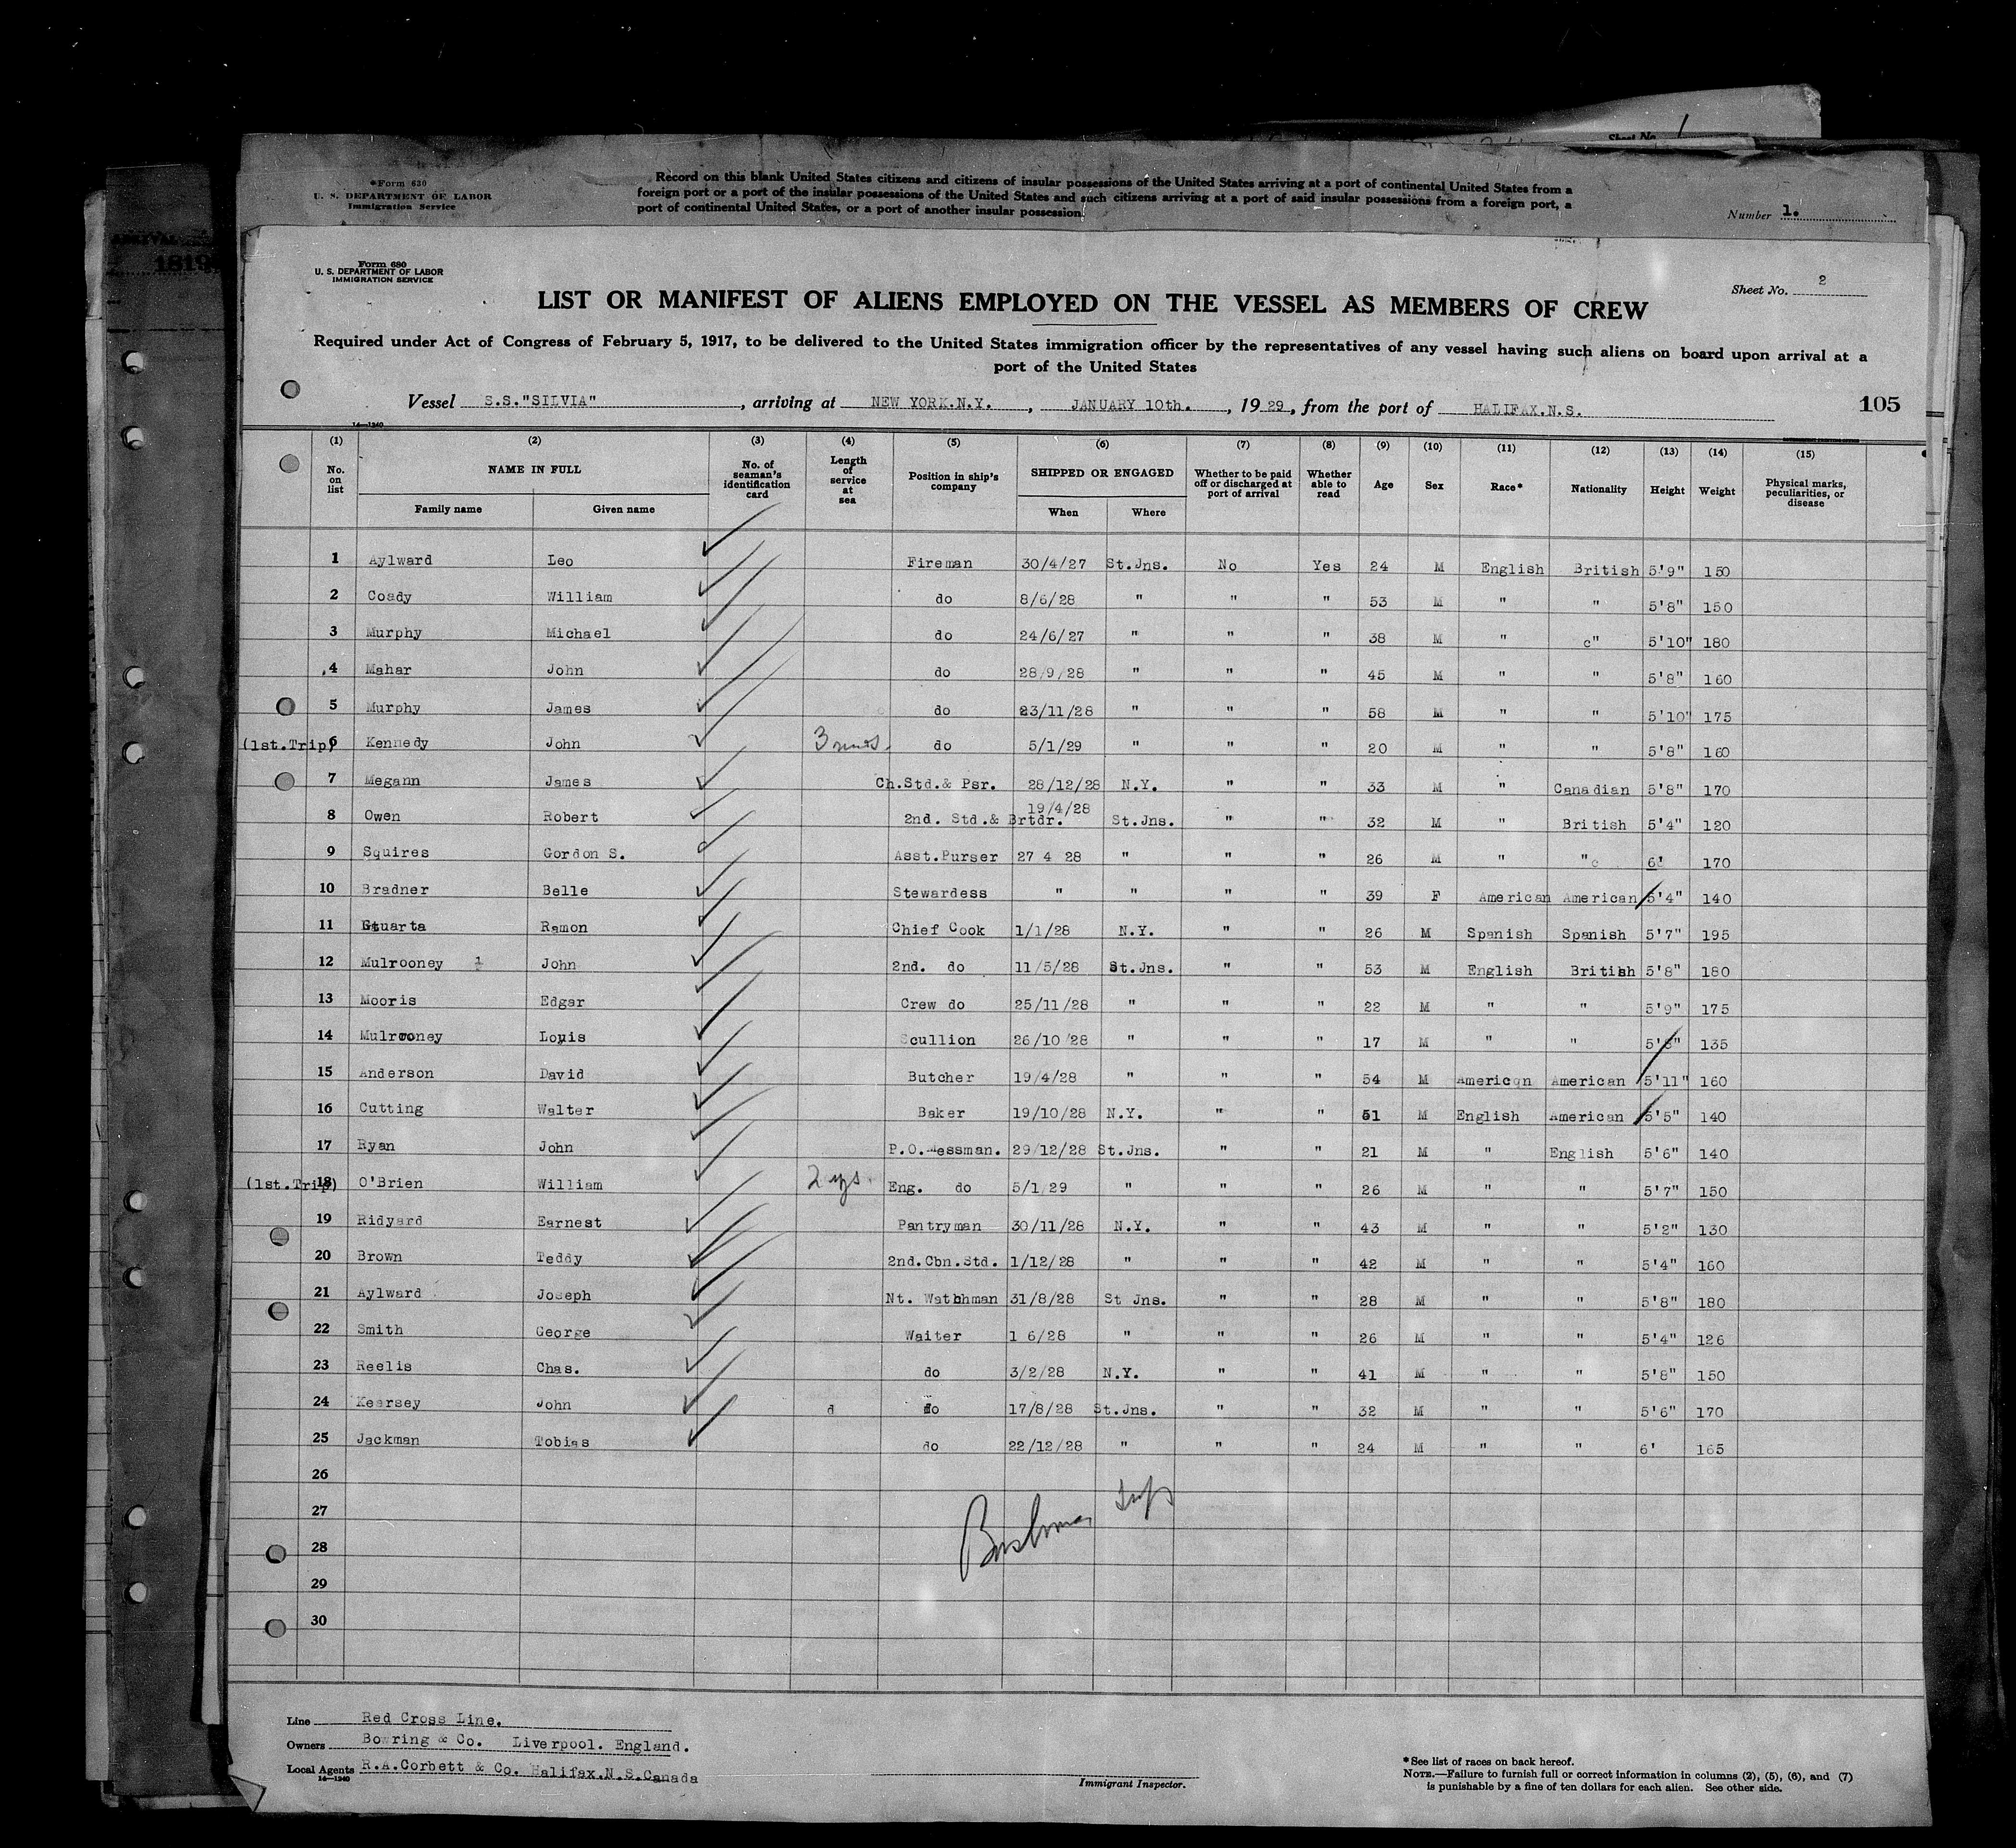 Sheet No. 1
*Form 630
U. S. DEPARTMENT OF LABOR
Immigration Service
Record on this blank United States citizens and citizens of insular possessions of the United States arriving at a port of continental United States from a
foreign port or a port of the insular possessions of the United States and such citizens arriving at a port of said insular possessions from a foreign port, a
port of continental United States, or a port of another insular possession.
Number 1.
1819
Form 680
U. S. DEPARTMENT OF LABOR
IMMIGRATION SERVICE
Sheet No. 2
LIST OR MANIFEST OF ALIENS EMPLOYED ON THE VESSEL AS MEMBERS OF CREW
Required under Act of Congress of February 5, 1917, to be delivered to the United States immigration officer by the representatives of any vessel having such aliens on board upon arrival at a
port of the United States
Vessel S.S."SILVIA", arriving at NEW YORK.N.Y., JANUARY 10th., 1929, from the port of HALIFAX.N.S. 105
14—1240
(1) (2) (3) (4) (5) (6) (7) (8) (9) (10) (11) (12) (13) (14) (15)
No. on list NAME IN FULL Family name Given name No. of seaman's identification card Length of service at sea Position in ship's company SHIPPED OR ENGAGED When Where Whether to be paid off or discharged at port of arrival Whether able to read Age Sex Race* Nationality Height Weight Physical marks, peculiarities, or disease
1 Aylward Leo Fireman 30/4/27 St.Jns. No Yes 24 M English British 5'9" 150
2 Coady William do 8/6/28 " " " 53 M " " 5'8" 150
3 Murphy Michael do 24/6/27 " " " 38 M " c" 5'10" 180
4 Mahar John do 28/9/28 " " " 45 M " " 5'8" 160
5 Murphy James do 23/11/28 " " " 58 M " " 5'10" 175
(1st.Trip) 6 Kennedy John 3 do 5/1/29 " " " 20 M " " 5'8" 160
7 Megann James Ch.Std.& Psr. 28/12/28 N.Y. " " 33 M " Canadian 5'8" 170
8 Owen Robert 2nd. Std.& Brtdr. 19/4/28 St.Jns. " " 32 M " British 5'4" 120
9 Squires Gordon S. Asst.Purser 27 4 28 " " " 26 M " "c 6' 170
10 Bradner Belle Stewardess " " " " 39 F American American 5'4" 140
11 Ramon Chief Cook 1/1/28 N.Y. " " 26 M Spanish Spanish 5'7" 195
12 Mulrooney John 2nd. do 11/5/28 St.Jns. " " 53 M English British 5'8" 180
13 Mooris Edgar Crew do 25/11/28 " " " 22 M " " 5'9" 175
14 Mulrooney Louis Scullion 26/10/28 " " " 17 M " " 5'8" 135
15 Anderson David Butcher 19/4/28 " " " 54 M American American 5'11" 160
16 Cutting Walter Baker 19/10/28 N.Y. " " 51 M English American 5'5" 140
17 Ryan John P.O.Messman. 29/12/28 St.Jns. " " 21 M " English 5'6" 140
(1st.Trip) 18 O'Brien William 2 yrs. Eng. do 5/1/29 " " " 26 M " " 5'7" 150
19 Ridyard Earnest Pantryman 30/11/28 N.Y. " " 43 M " " 5'2" 130
20 Brown Teddy 2nd.Cbn.Std. 1/12/28 " " " 42 M " " 5'4" 160
21 Aylward Joseph Nt. Watchman 31/8/28 St Jns. " " 28 M " " 5'8" 180
22 Smith George Waiter 1 6/28 " " " 26 M " " 5'4" 126
23 Reelis Chas. do 3/2/28 N.Y. " " 41 M " " 5'8" 150
24 Kearsey John d do 17/8/28 St.Jns. " " 32 M " " 5'6" 170
25 Jackman Tobias do 22/12/28 " " " 24 M " " 6' 165
26
27
28
29
30
Line Red Cross Line.
Owners Bowring & Co. Liverpool. England.
Local Agents R.A.Corbett & Co. Halifax.N.S.Canada
14—1240
Immigrant Inspector.
*See list of races on back hereof.
NOTE.—Failure to furnish full or correct information in columns (2), (5), (6), and (7)
is punishable by a fine of ten dollars for each alien. See other side.